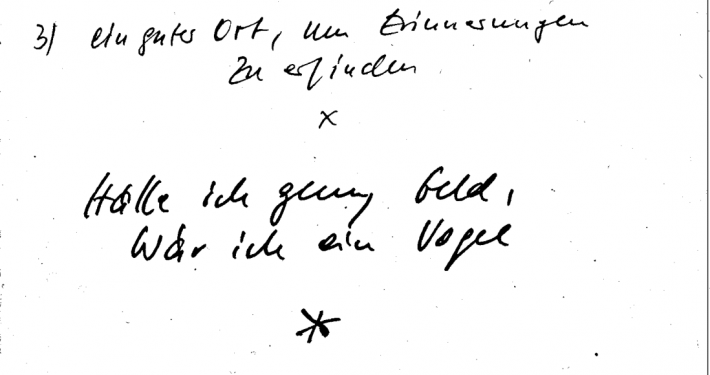 3) ein guter Ort, um Erinnerungen
zu erfinden
x
Hätte ich genug Geld,
Wär ich ein Vogel
*